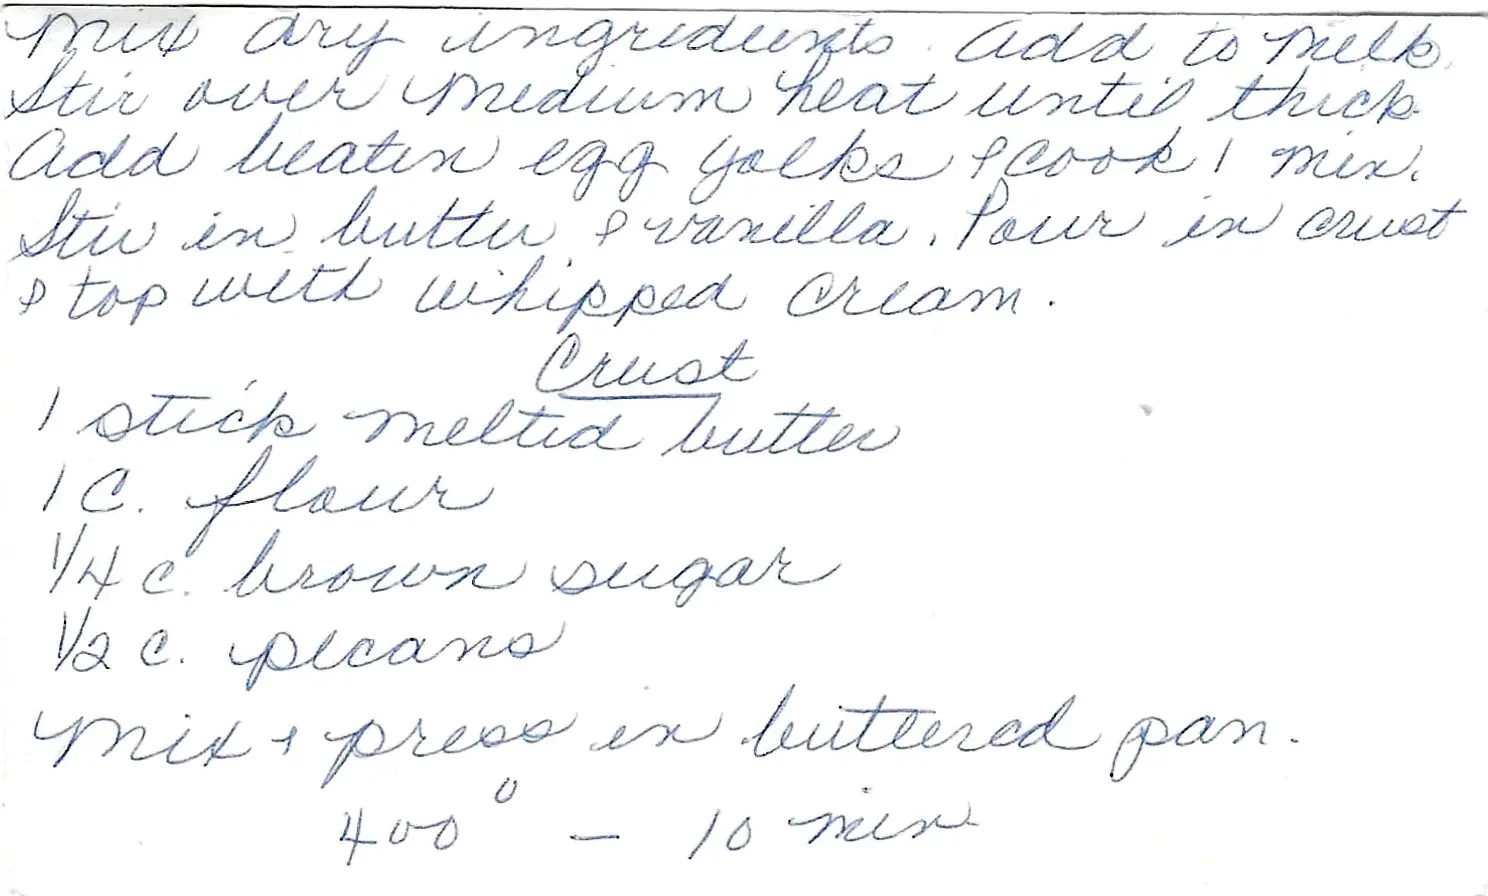 Mix dry ingredients. Add to milk.
Stir over medium heat until thick.
Add beaten egg yolks & cook 1 min.
Stir in butter & vanilla. Pour in crust
& top with whipped cream.
Crust
1 stick melted butter
1 C. flour
1/4 c. brown sugar
1/2 c. pecans
Mix + press in buttered pan.
400° - 10 min